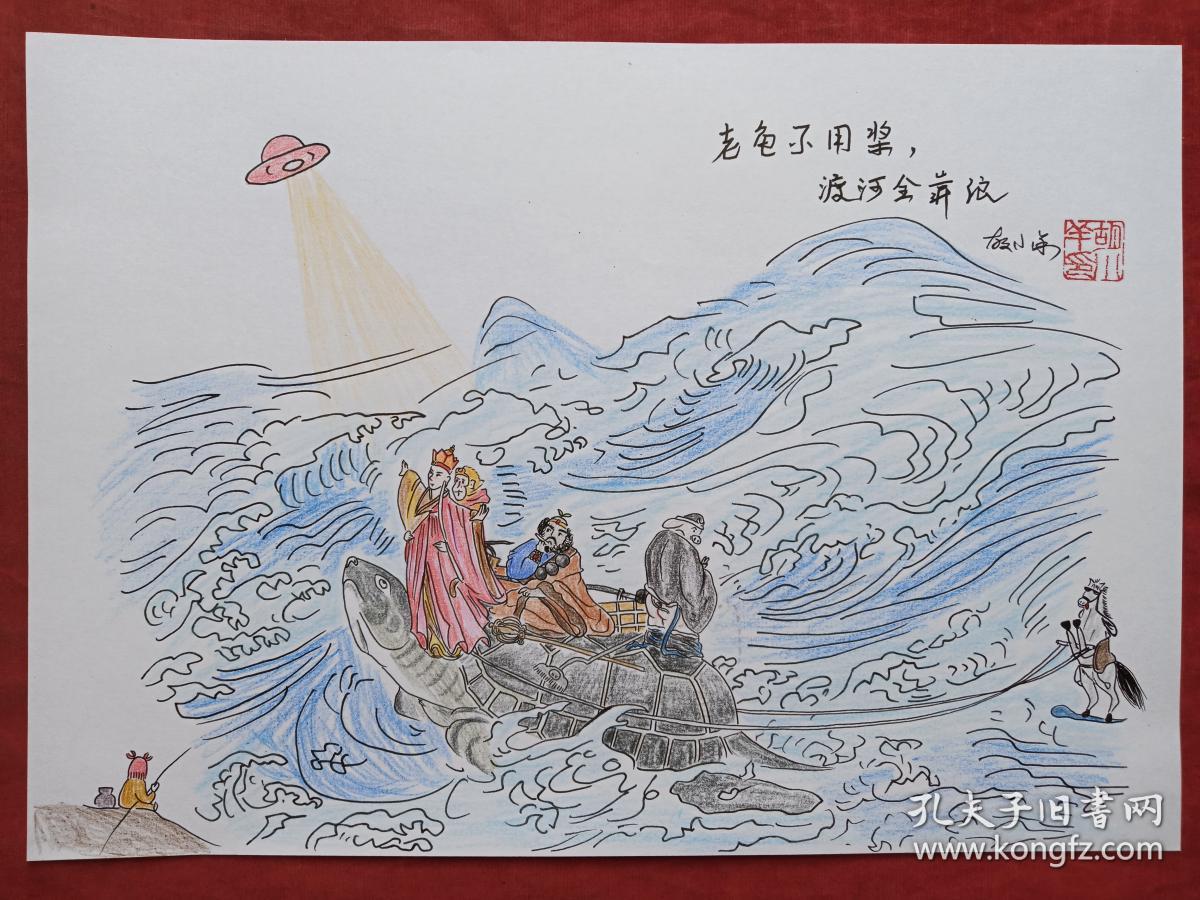 老龟不用桨，
渡河全靠浪
胡小
胡小
孔夫子旧書网
www.kongfz.com